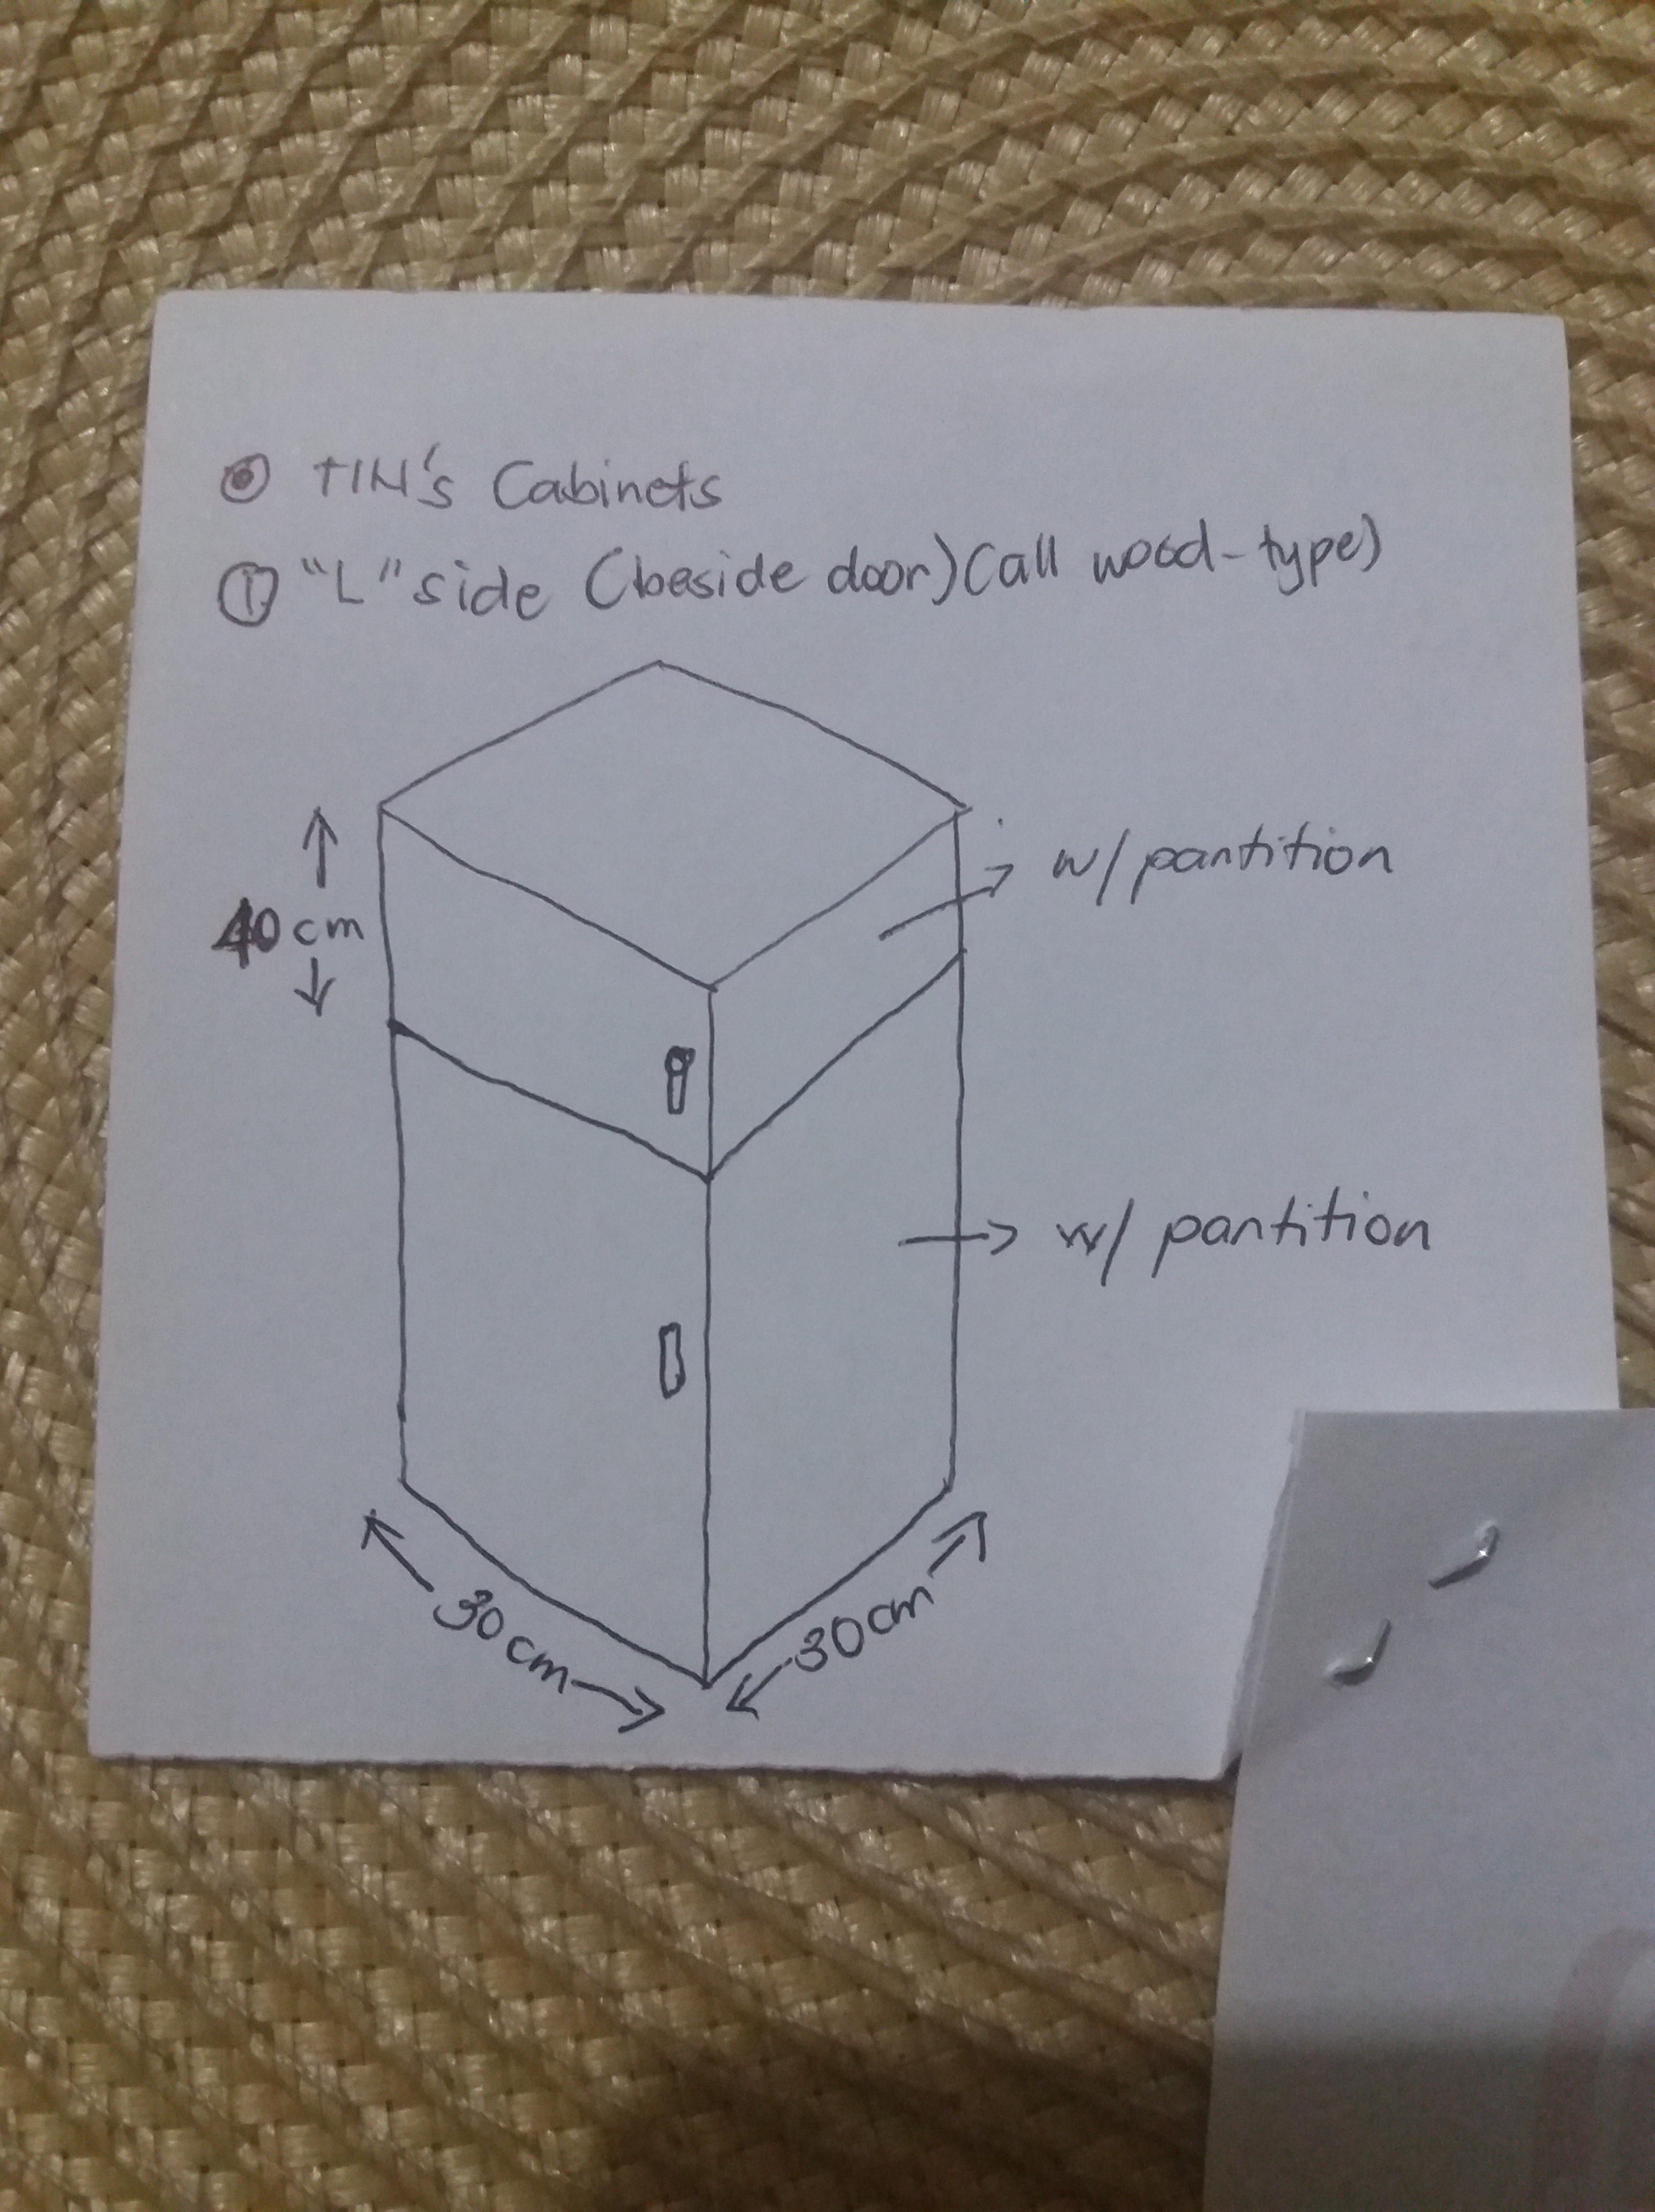 TIN's Cabinets
① "L" side (beside door) (all wood-type)
w/ partition
40 cm
w/ partition
30 cm
30 cm